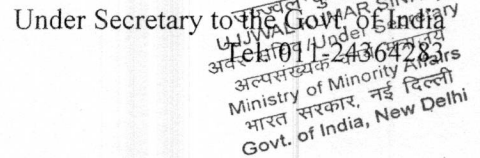 Under Secretary to the Govt. of India
Tel: 011-24364283
UJJWAL KUMAR SIN
अवर सचिव/Under Secretary
अल्पसंख्यक कार्य मंत्रालय
Ministry of Minority Affairs
भारत सरकार, नई दिल्ली
Govt. of India, New Delhi